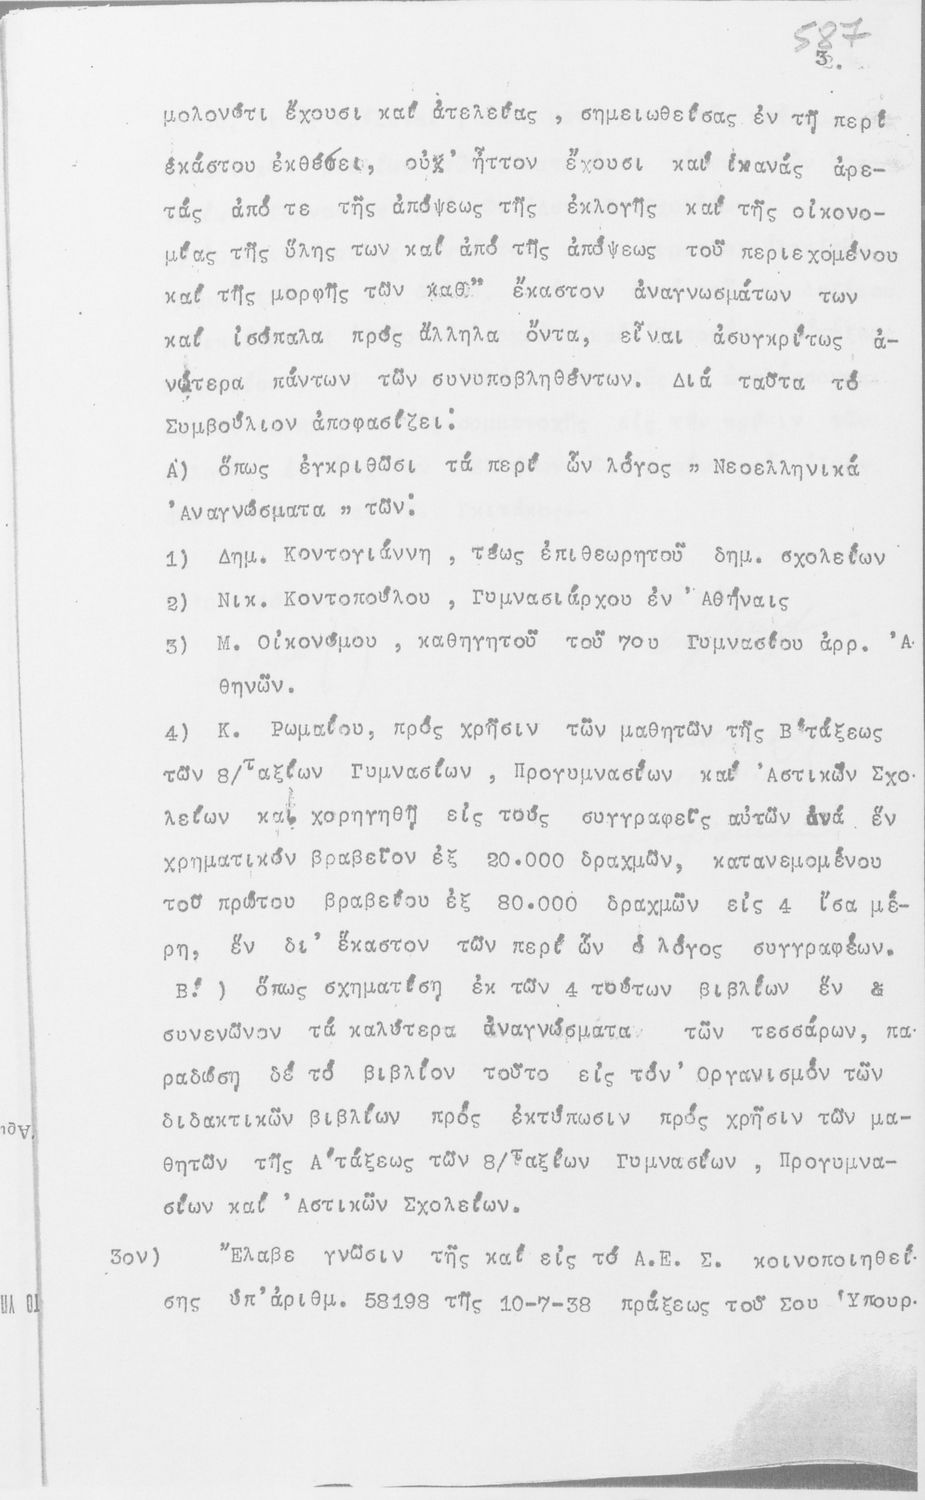 587
3.
μολονότι ἔχουσι καί ἀτελείας , σημειωθείσας ἐν τῇ περί
ἑκάστου ἐκθέσει, οὐχ' ἧττον ἔχουσι καί ἱκανάς ἀρε-
τάς ἀπό τε τῆς ἀπόψεως τῆς ἐκλογῆς καί τῆς οἰκονο-
μίας τῆς ὕλης των καί ἀπό τῆς ἀπόψεως τοῦ περιεχομένου
καί τῆς μορφῆς τῶν καθ" ἕκαστον ἀναγνωσμάτων των
καί ἰσόπαλα πρός ἄλληλα ὄντα, εἶναι ἀσυγκρίτως ἀ-
νώτερα πάντων τῶν συνυποβληθέντων. Διά ταῦτα τό
Συμβούλιον ἀποφασίζει:
Α) ὅπως ἐγκριθῶσι τά περί ὧν λόγος " Νεοελληνικά
'Αναγνώσματα " τῶν:
1) Δημ. Κοντογιάννη , τέως ἐπιθεωρητοῦ δημ. σχολείων
2) Νικ. Κοντοπούλου , Γυμνασιάρχου ἐν 'Αθήναις
3) Μ. Οἰκονόμου , καθηγητοῦ τοῦ 7ου Γυμνασίου ἀρρ. 'Α-
θηνῶν.
4) Κ. Ρωμαίου, πρός χρῆσιν τῶν μαθητῶν τῆς Β'τάξεως
τῶν 8/Ταξίων Γυμνασίων , Προγυμνασίων καί 'Αστικῶν Σχο-
λείων καί χορηγηθῇ εἰς τούς συγγραφεῖς αὐτῶν ἀνά ἕν
χρηματικόν βραβεῖον ἐξ 20.000 δραχμῶν, κατανεμομένου
τοῦ πρώτου βραβείου ἐξ 80.000 δραχμῶν εἰς 4 ἴσα μέ-
ρη, ἕν δι' ἕκαστον τῶν περί ὧν ὁ λόγος συγγραφέων.
Β') ὅπως σχηματίσῃ ἐκ τῶν 4 τούτων βιβλίων ἕν &
συνενῶνον τά καλύτερα ἀναγνώσματα τῶν τεσσάρων, πα-
ραδώσῃ δέ τό βιβλίον τοῦτο εἰς τόν' Οργανισμόν τῶν
διδακτικῶν βιβλίων πρός ἐκτύπωσιν πρός χρῆσιν τῶν μα-
θητῶν τῆς Α'τάξεως τῶν 8/Ταξίων Γυμνασίων , Προγυμνα-
σίων καί 'Αστικῶν Σχολείων.
3ον) "Ελαβε γνῶσιν τῆς καί εἰς τό Α.Ε. Σ. κοινοποιηθεί-
σης ὑπ'ἀριθμ. 58198 τῆς 10-7-38 πράξεως τοῦ Σου 'Υπουρ-